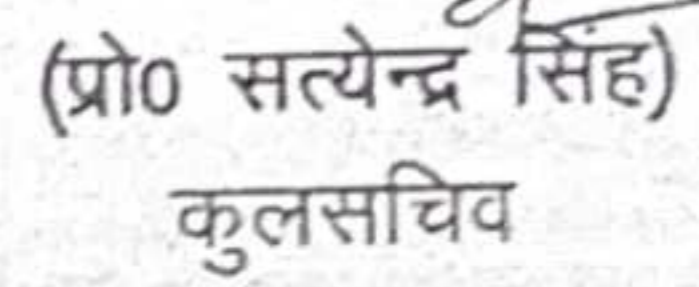 (प्रो0 सत्येन्द्र सिंह)
कुलसचिव